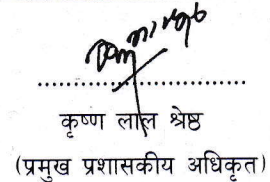 कृष्ण लाल श्रेष्ठ
(प्रमुख प्रशासकीय अधिकृत)